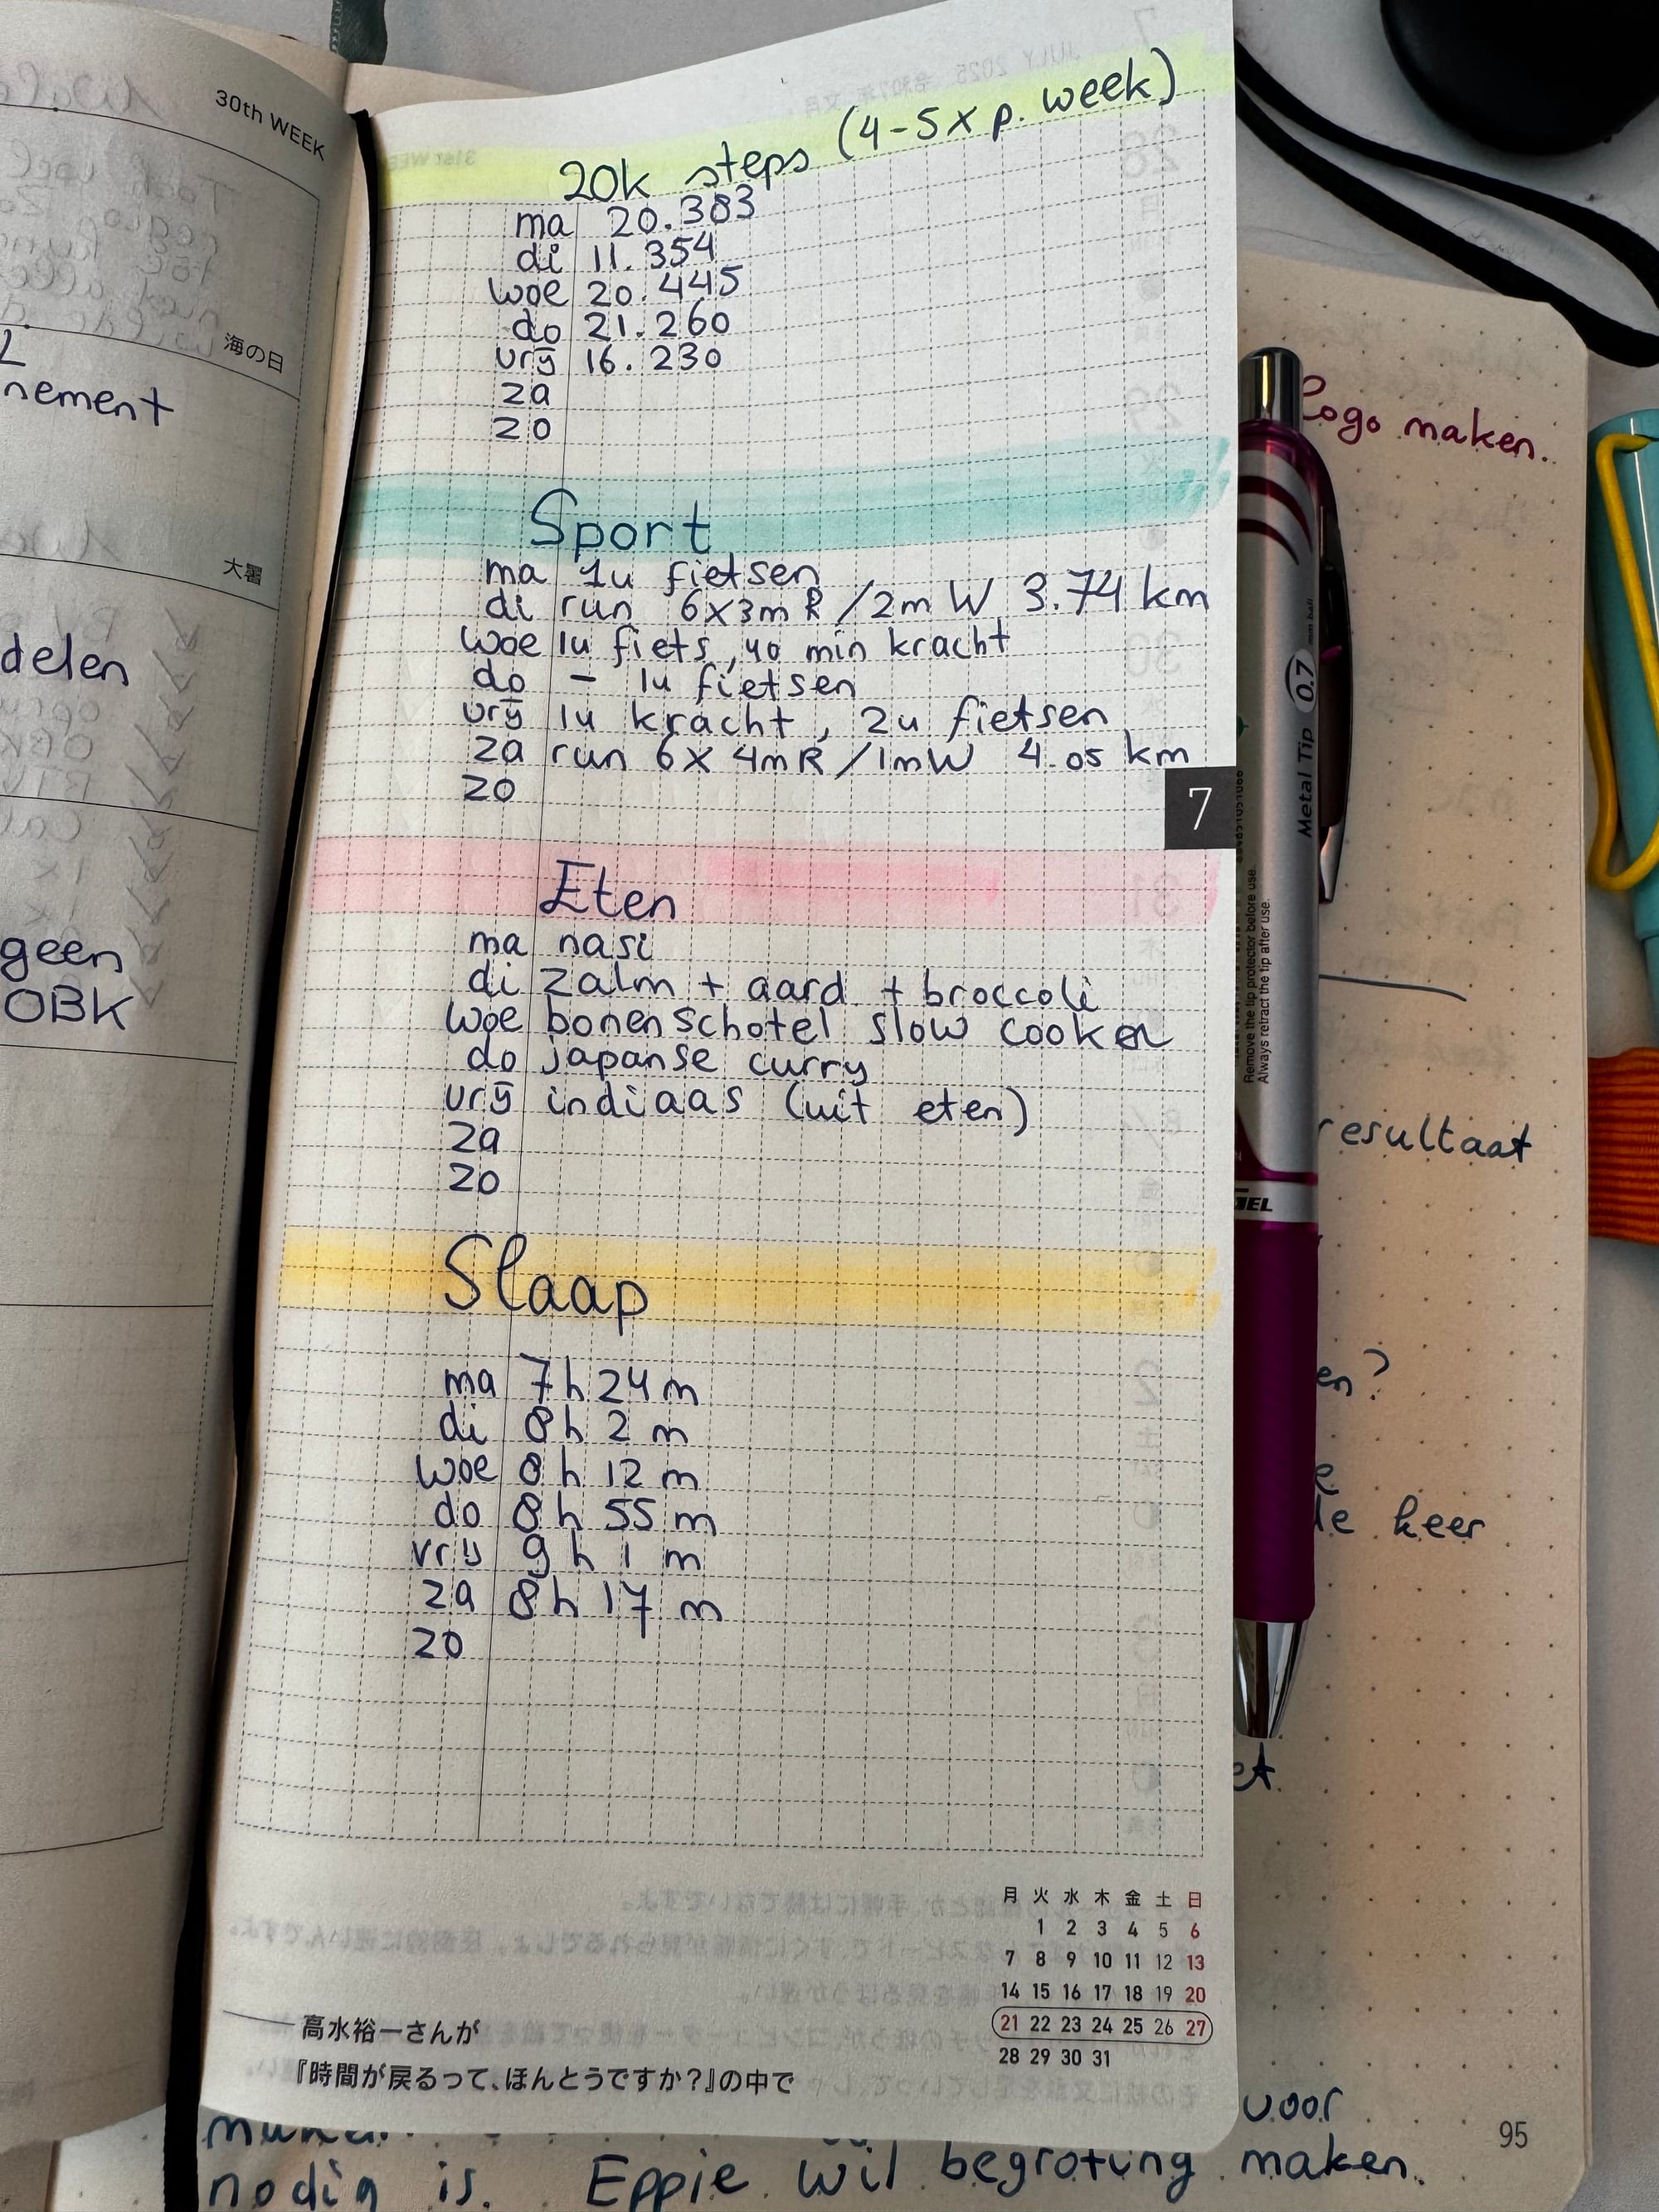 30th WEEK
海の日
nement
大暑
delen
geen
OBK
20k steps (4-5x p. week)
ma 20.383
di 11.354
woe 20.445
do 21.260
vrij 16.230
za
zo
Sport
ma 1u fietsen
di run 6x3mR/2mW 3.74 km
woe 1u fiets, 40 min kracht
do - 1u fietsen
vrij 1u kracht, 2u fietsen
za run 6x 4mR/1mW 4.05 km
zo
7
Eten
ma nasi
di zalm + aard + broccoli
woe bonenschotel slow cooker
do japanse curry
vrij indiaas (uit eten)
za
zo
Slaap
ma 7h 24m
di 8h 2 m
woe 8h 12 m
do 8h 55 m
vrij 9h 1 m
za 8h 17 m
zo
月 火 水 木 金 土 日
1 2 3 4 5 6
7 8 9 10 11 12 13
14 15 16 17 18 19 20
21 22 23 24 25 26 27
28 29 30 31
高水裕一さんが
『時間が戻るって、ほんとうですか？』の中で
Logo maken.
Metal Tip 0.7 mm ball
Remove the tip protector before use.
Always retract the tip after use.
GEL
resultaat
en?
keer
et.
voor
95
nodig is. Eppie wil begroting maken.